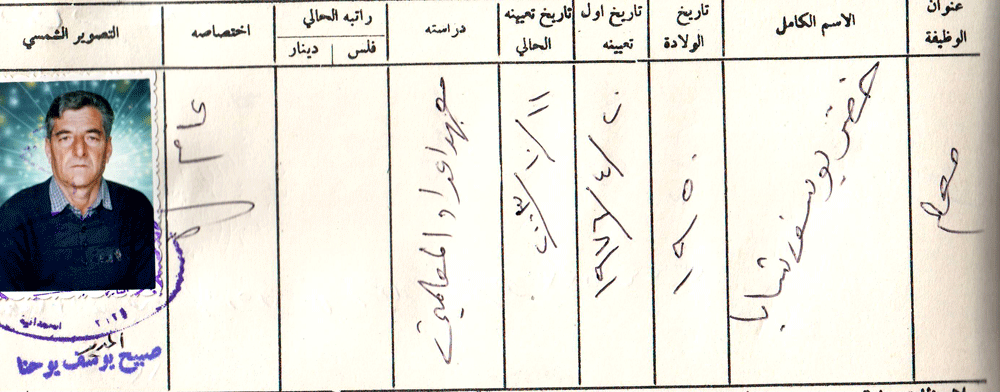 عنوان الوظيفة
الاسم الكامل
تاريخ الولادة
تاريخ اول تعيينه
تاريخ تعيينه الحالي
دراسته
راتبه الحالي
فلس
دينار
اختصاصه
التصوير الشمسي
معلم
خضر يوسف شابا
١٩٥٠
معهد اعداد المعلمين
عام
المدير
صبيح يوسف يوحنا